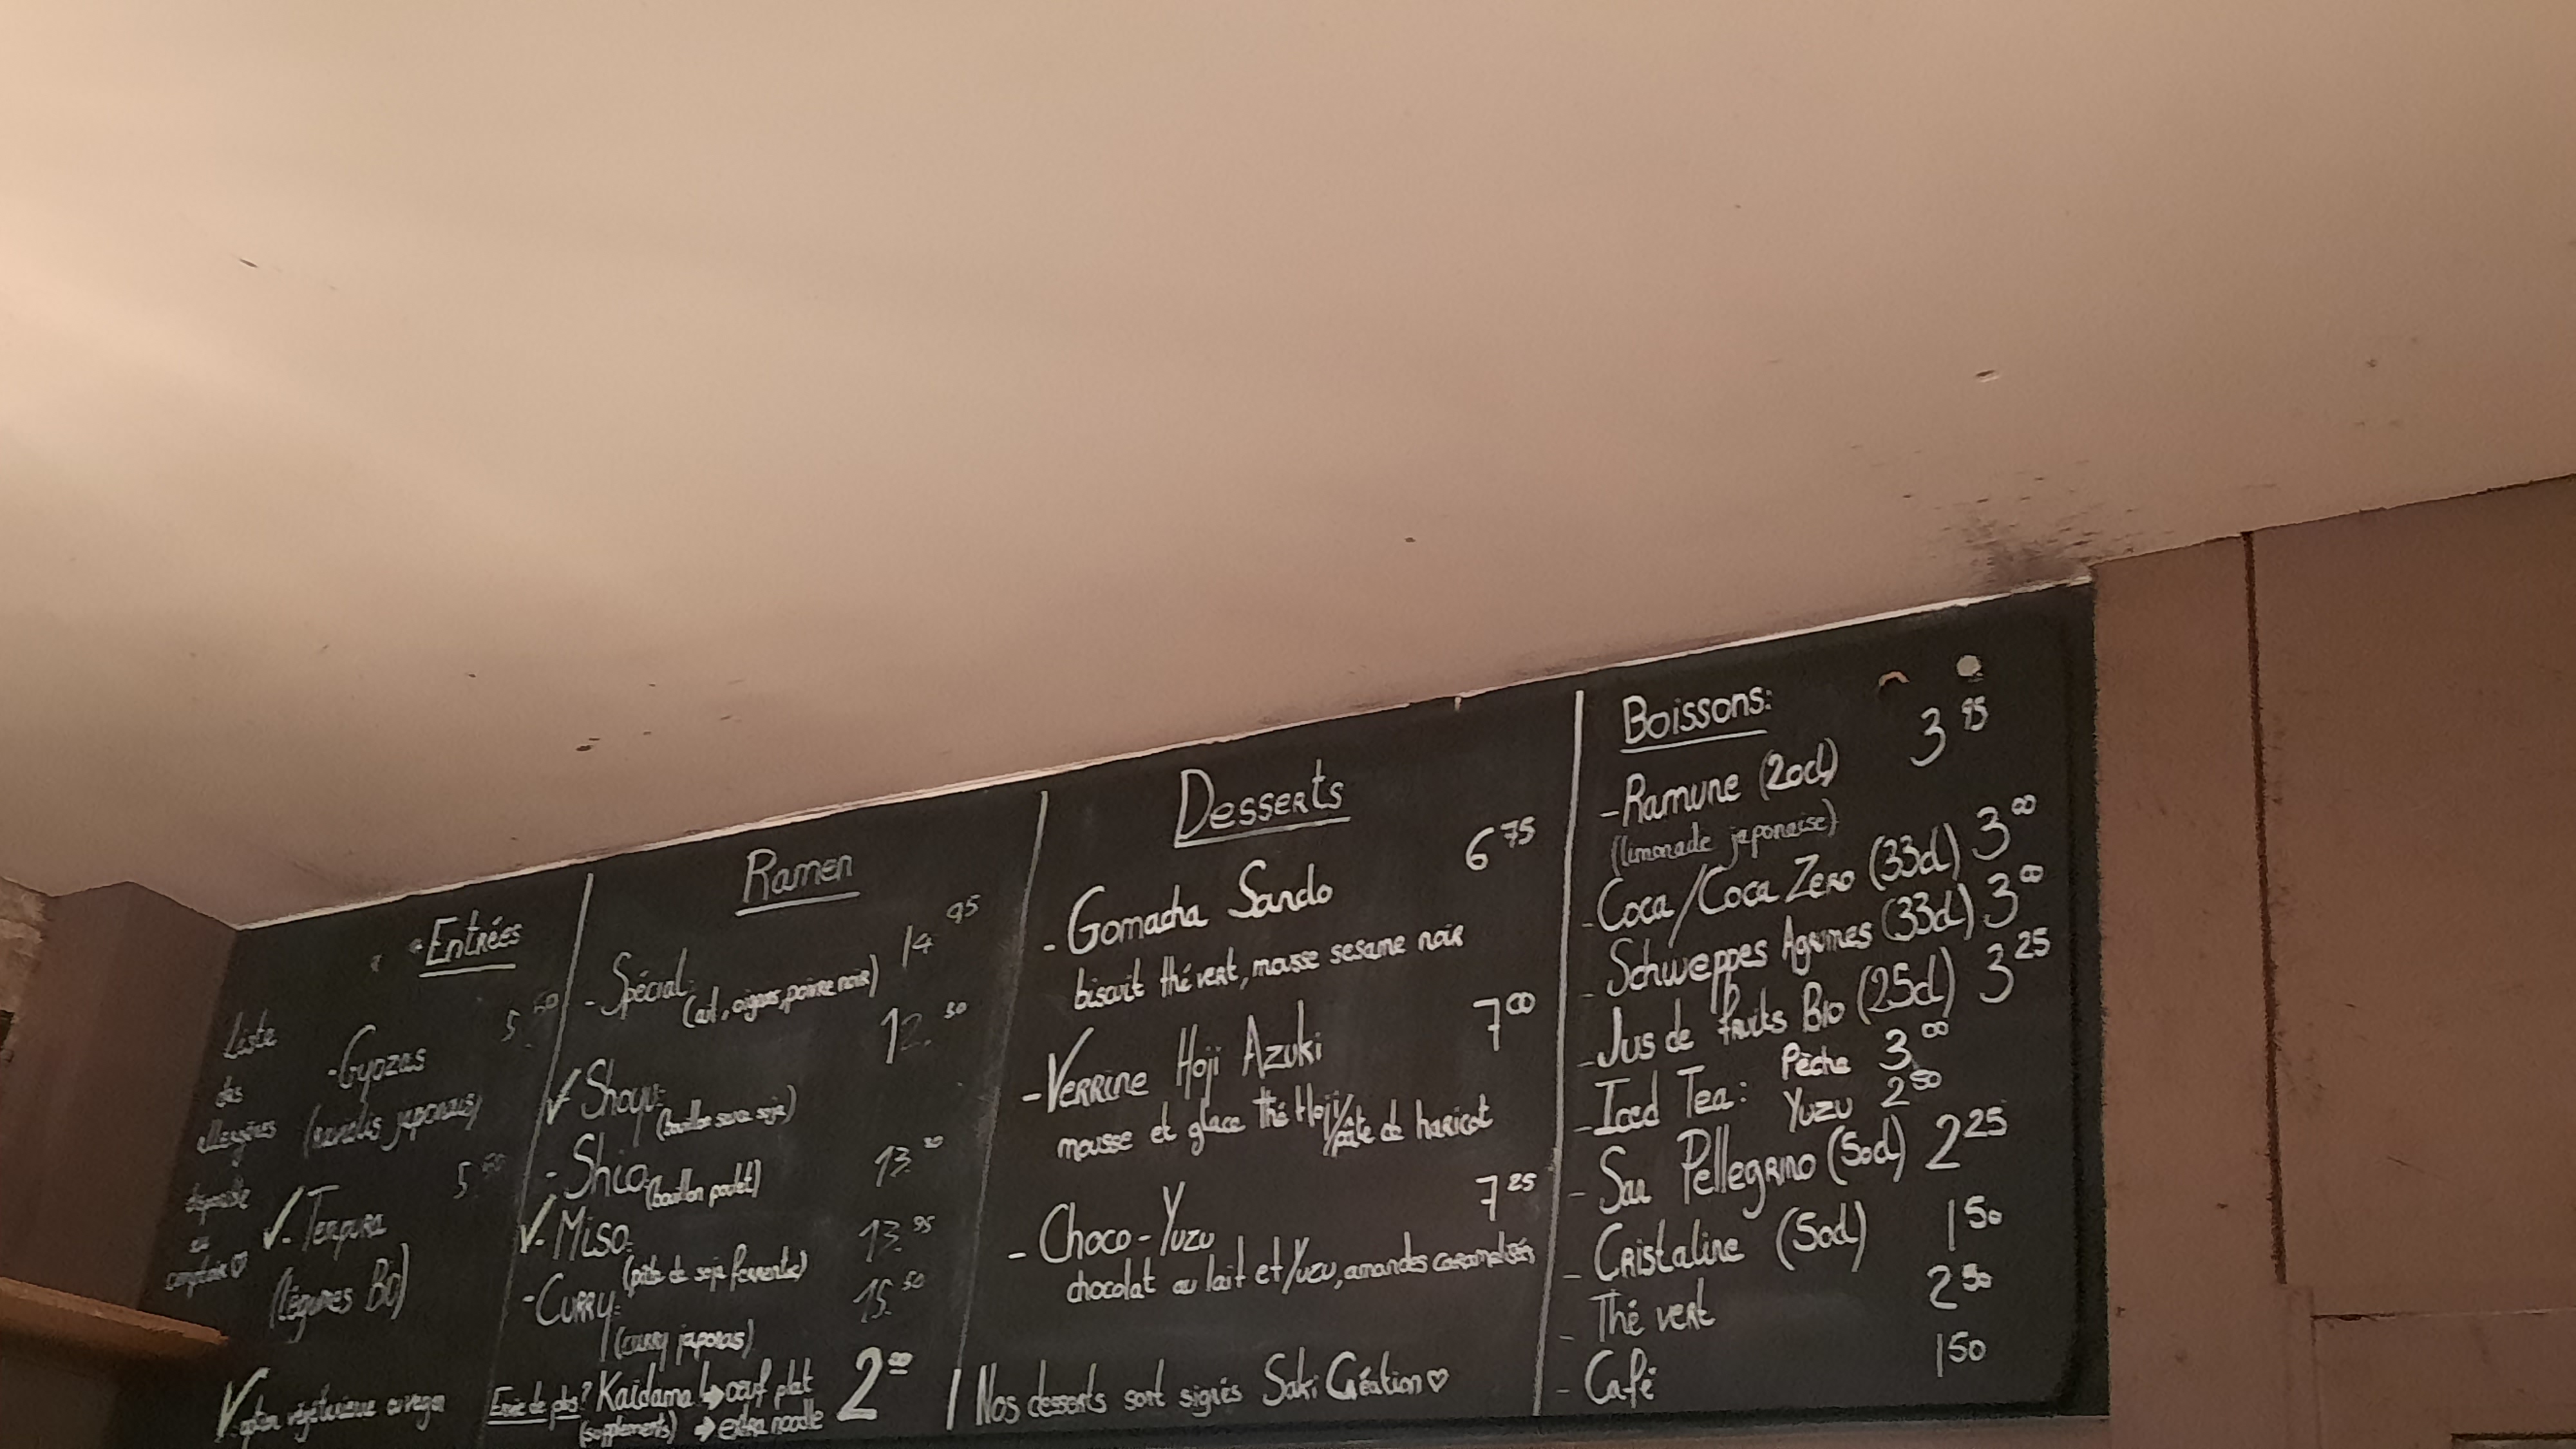 Entrées
Liste
des
allergènes
disponible
au
comptoir ♡
- Gyozas 5.50
(raviolis japonais)
✓- Tempura 5.50
(légumes BIO)
V option végétarienne ou vegan
Ramen
- Spécial: 14.95
(ail, oignons, poivre noir)
✓ Shoyu: 12.50
(bouillon sauce soja)
- Shio: 13.20
(bouillon poulet)
✓- Miso: 13.95
(pâte de soja fermentée)
- Curry: 15.50
(curry japonais)
Envie de plus? Kaidama! → oeuf plat 2.00
(suppléments) → extra noodle
Desserts
- Gomacha Sando 6 75
biscuit thé vert, mousse sesame noir
- Verrine Hoji Azuki 7 00
mousse et glace thé Hoji/pâte de haricot
- Choco-Yuzu 7 25
chocolat au lait et Yuzu, amandes caramélisés
Nos desserts sont signés Saki Création ♡
Boissons:
- Ramune (20cl) 3 95
(limonade japonaise)
- Coca/Coca Zero (33cl) 3 00
- Schweppes Agrumes (33cl) 3 00
- Jus de fruits Bio (25cl) 3 25
- Iced Tea: Pêche 3,00
Yuzu 2 50
- San Pellegrino (50cl) 2 25
- Cristaline (50cl) 1 50
- Thé vert 2 50
- Café 1 50